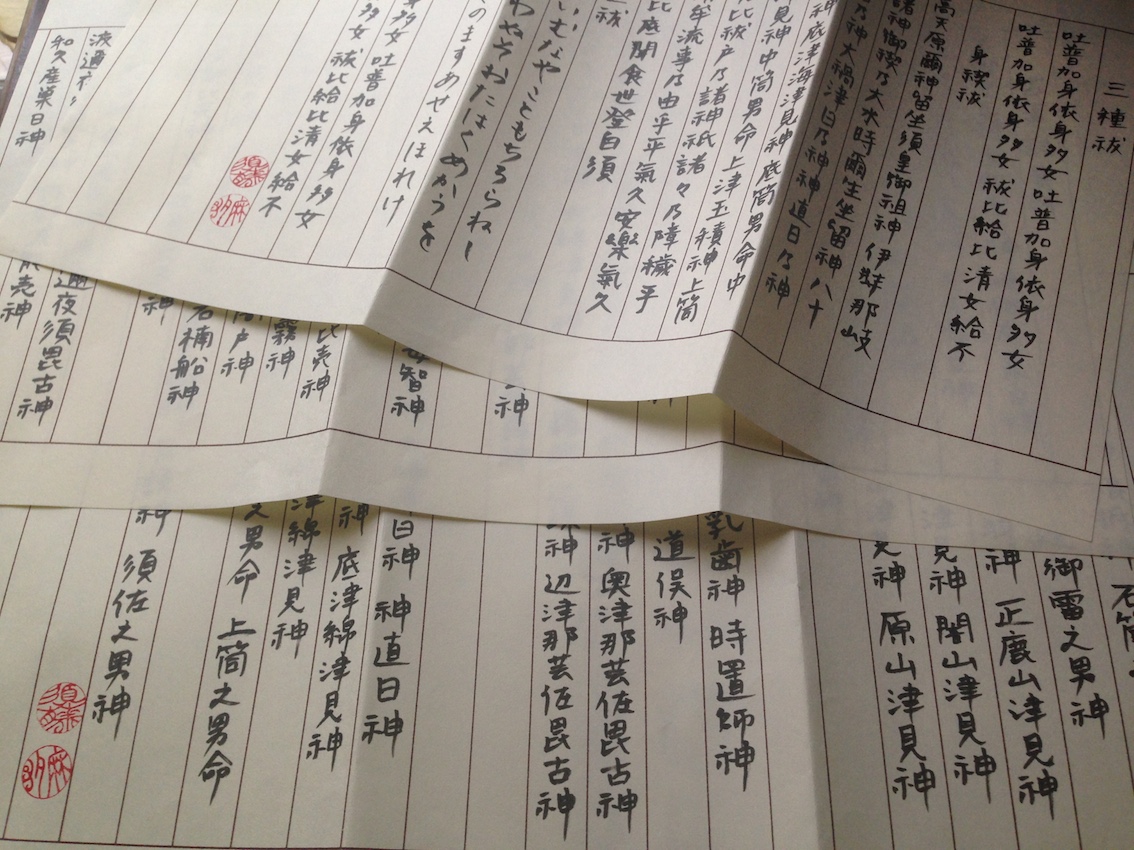 三種祓
吐普加身依身多女吐普加身依身多女
吐普加身依身多女祓比給比清女給不
身禊祓
高天原爾神留坐須皇御祖神伊弉那岐
諸神御禊乃大水時爾生坐留神八十
乃神大禍津日乃神神直日乃神
神底津海津見神底筒男命中
見神中筒男命上津玉積神上筒
比祓戸乃諸神祇諸々乃障穢乎
牟流事乃由乎平氣久安樂氣久
比底聞食世登白須
祓
いむなやこともちろらねし
わやそおたはくめかうを
のますあせえほれけ
多女吐普加身依身多女
多女祓比給比清女給不
知久産巣日神
邇夜須毘古神
売神
石楠船神
戸神
霧神
比売神
智神
神
石筒之
御雷之男神
神 正鹿山津見神
見神 闇山津見神
神 原山津見神
乳歯神 時置師神
道俣神
神 奥津那芸佐毘古神
神 辺津那芸佐毘古神
日神 神直日神
神 底津綿津見神
津綿津見神
之男命 上筒之男命
神 須佐之男神